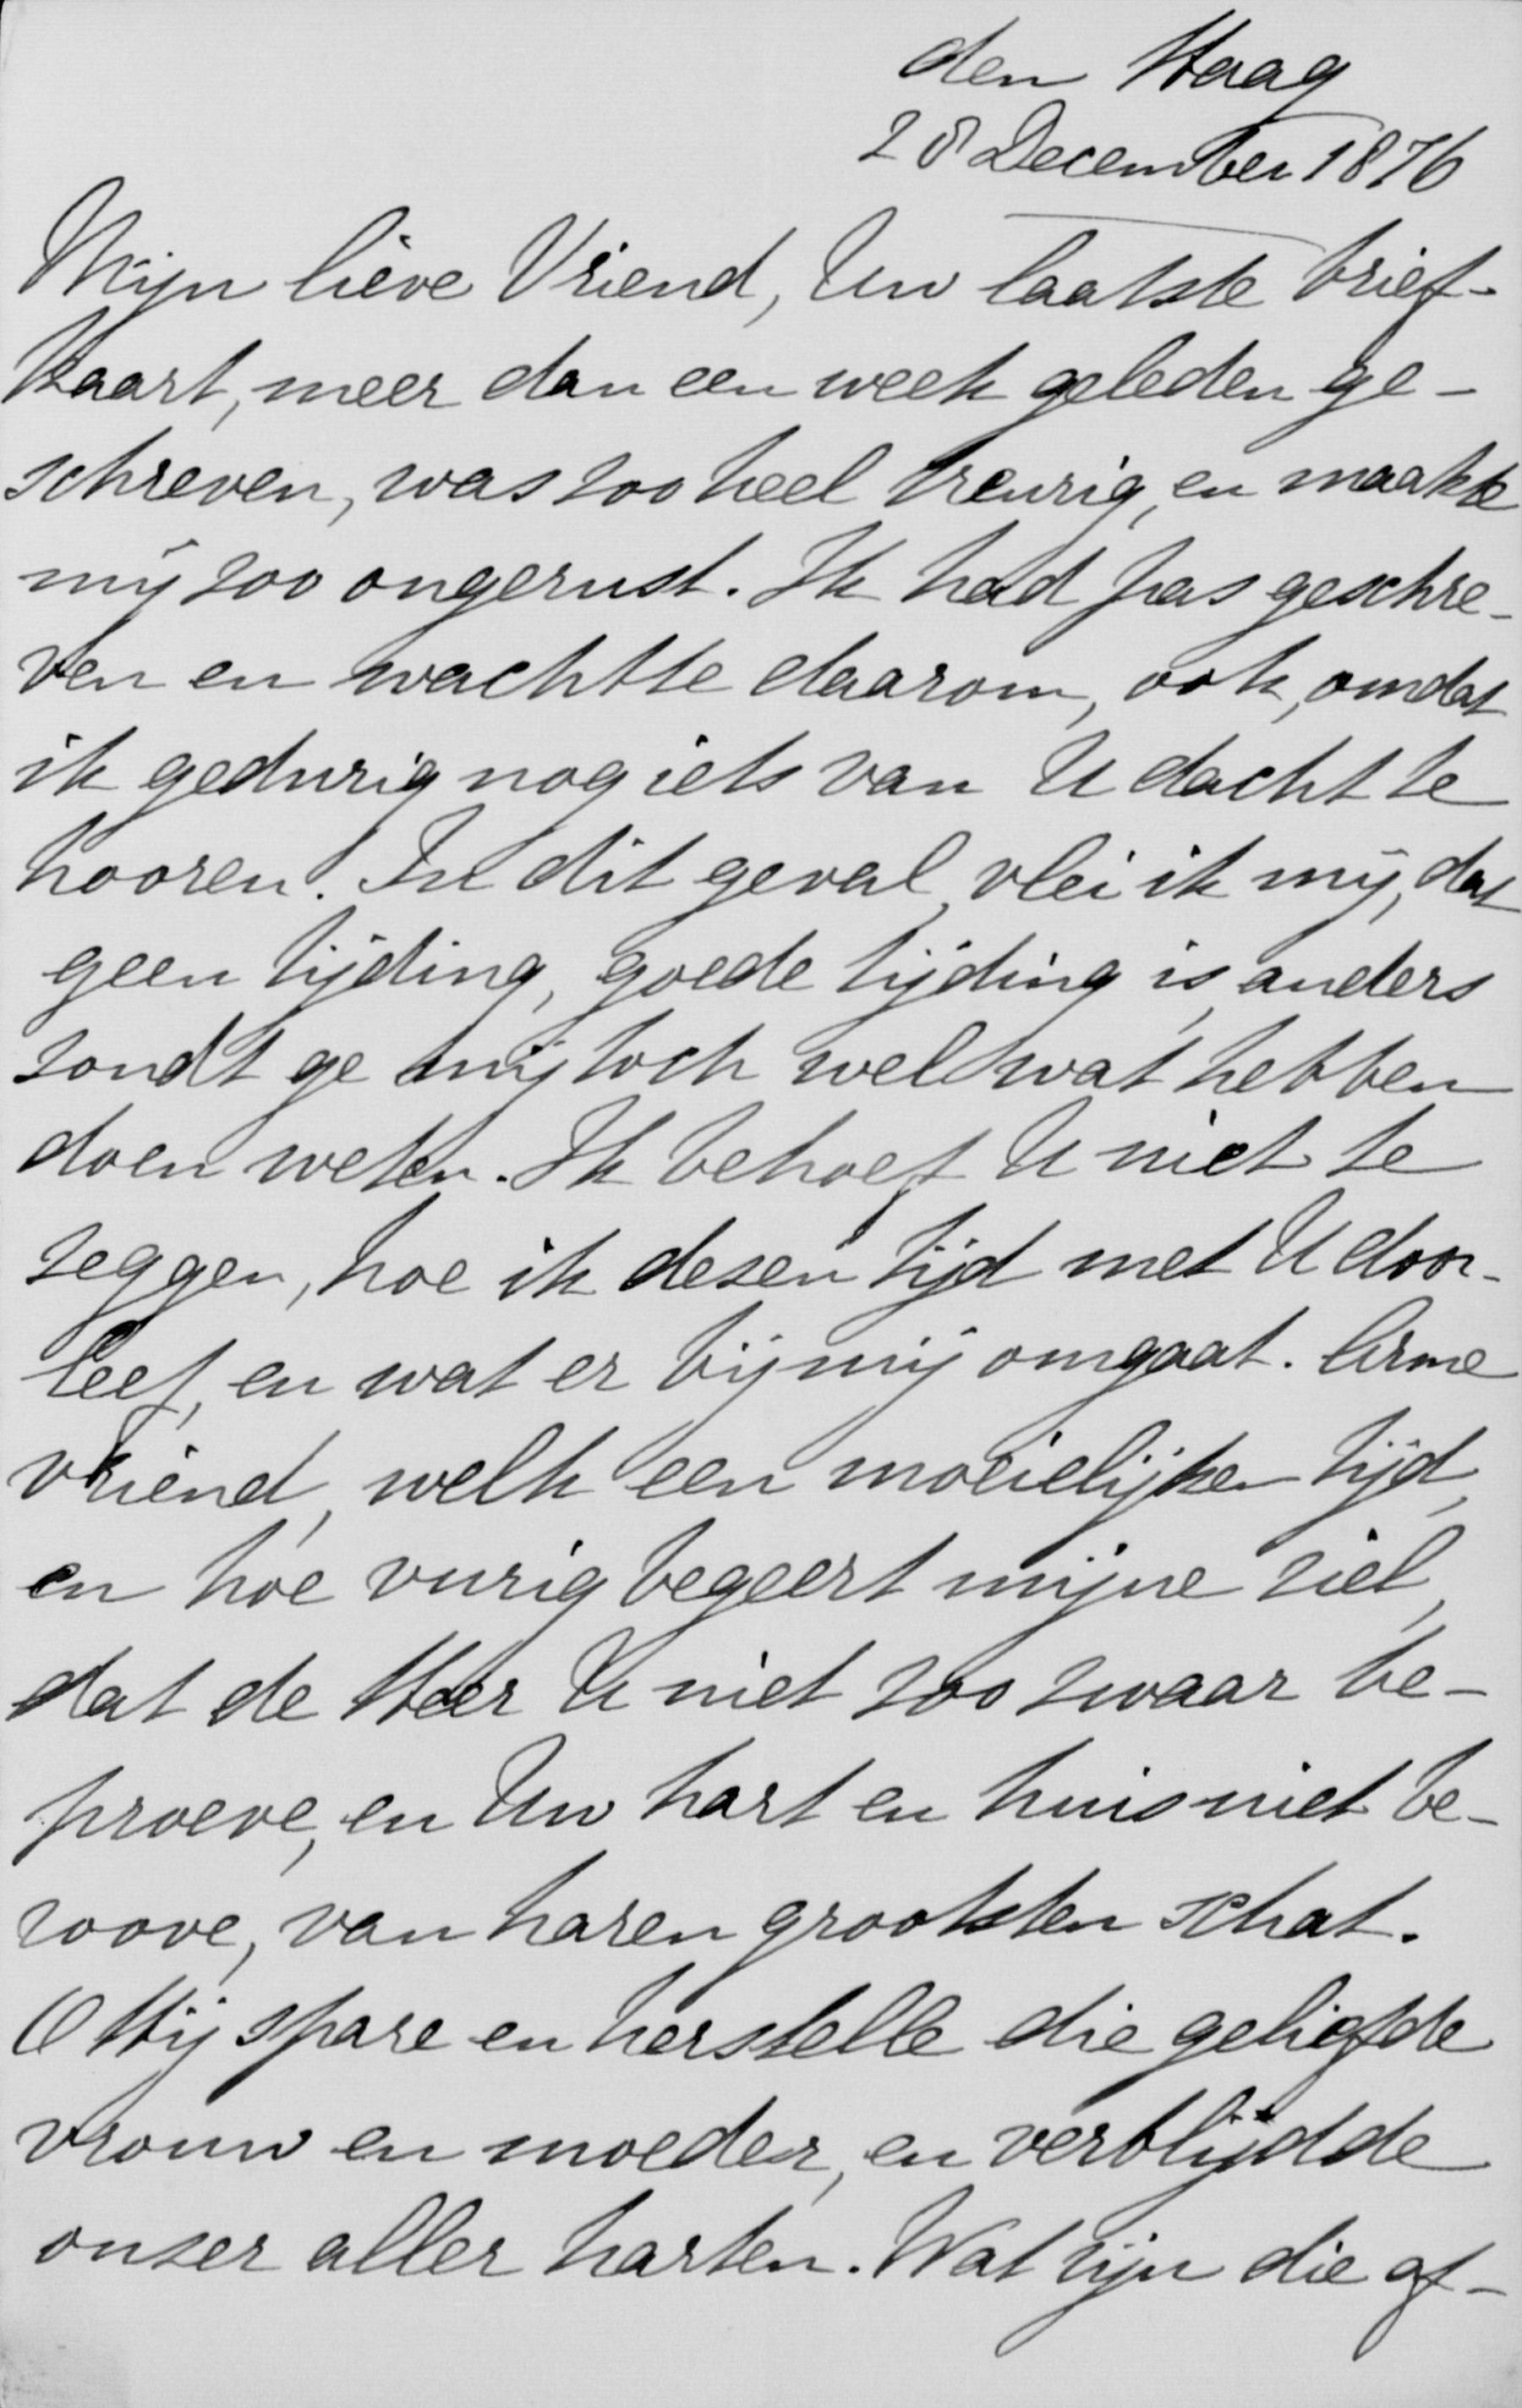 den Haag
28 December 1876
Mijn lieve Vriend, Uw laatste brief-
kaart, meer dan een week geleden ge-
schreven, was zoo heel treurig, en maakte
mij zoo ongerust. Ik had pas geschre-
ven en wachtte daarom, ook, omdat
ik gedurig nog iets van U dacht te
hooren. In dit geval, vlei ik mij, dat
geen tijding, goede tijding is, anders
zoudt ge mij toch wel wat hebben
doen weten. Ik behoef U niet te
zeggen, hoe ik dezen tijd met U door-
leef, en wat er bij mij omgaat. Arme
vriend, welk een moeielijken tijd,
en hoe vurig begeert mijne ziel,
dat de Heer U niet zoo zwaar be-
proeve, en Uw hart en huis niet be-
roove, van haren grootsten schat.
O Hij spare en herstelle die geliefde
vrouw en moeder, en verblijdde
onzer aller harten. Wat zijn die af-